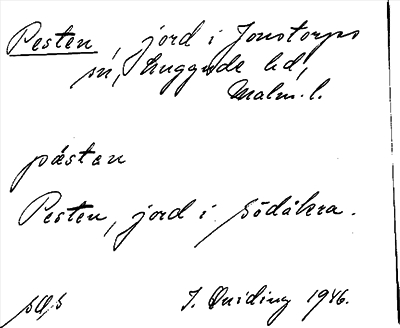 Pesten, jord i Jonstorps
sn, Luggude hd,
Malm. l.
pästen
Pesten, jord i Södåkra.
J. Quiding 1946.